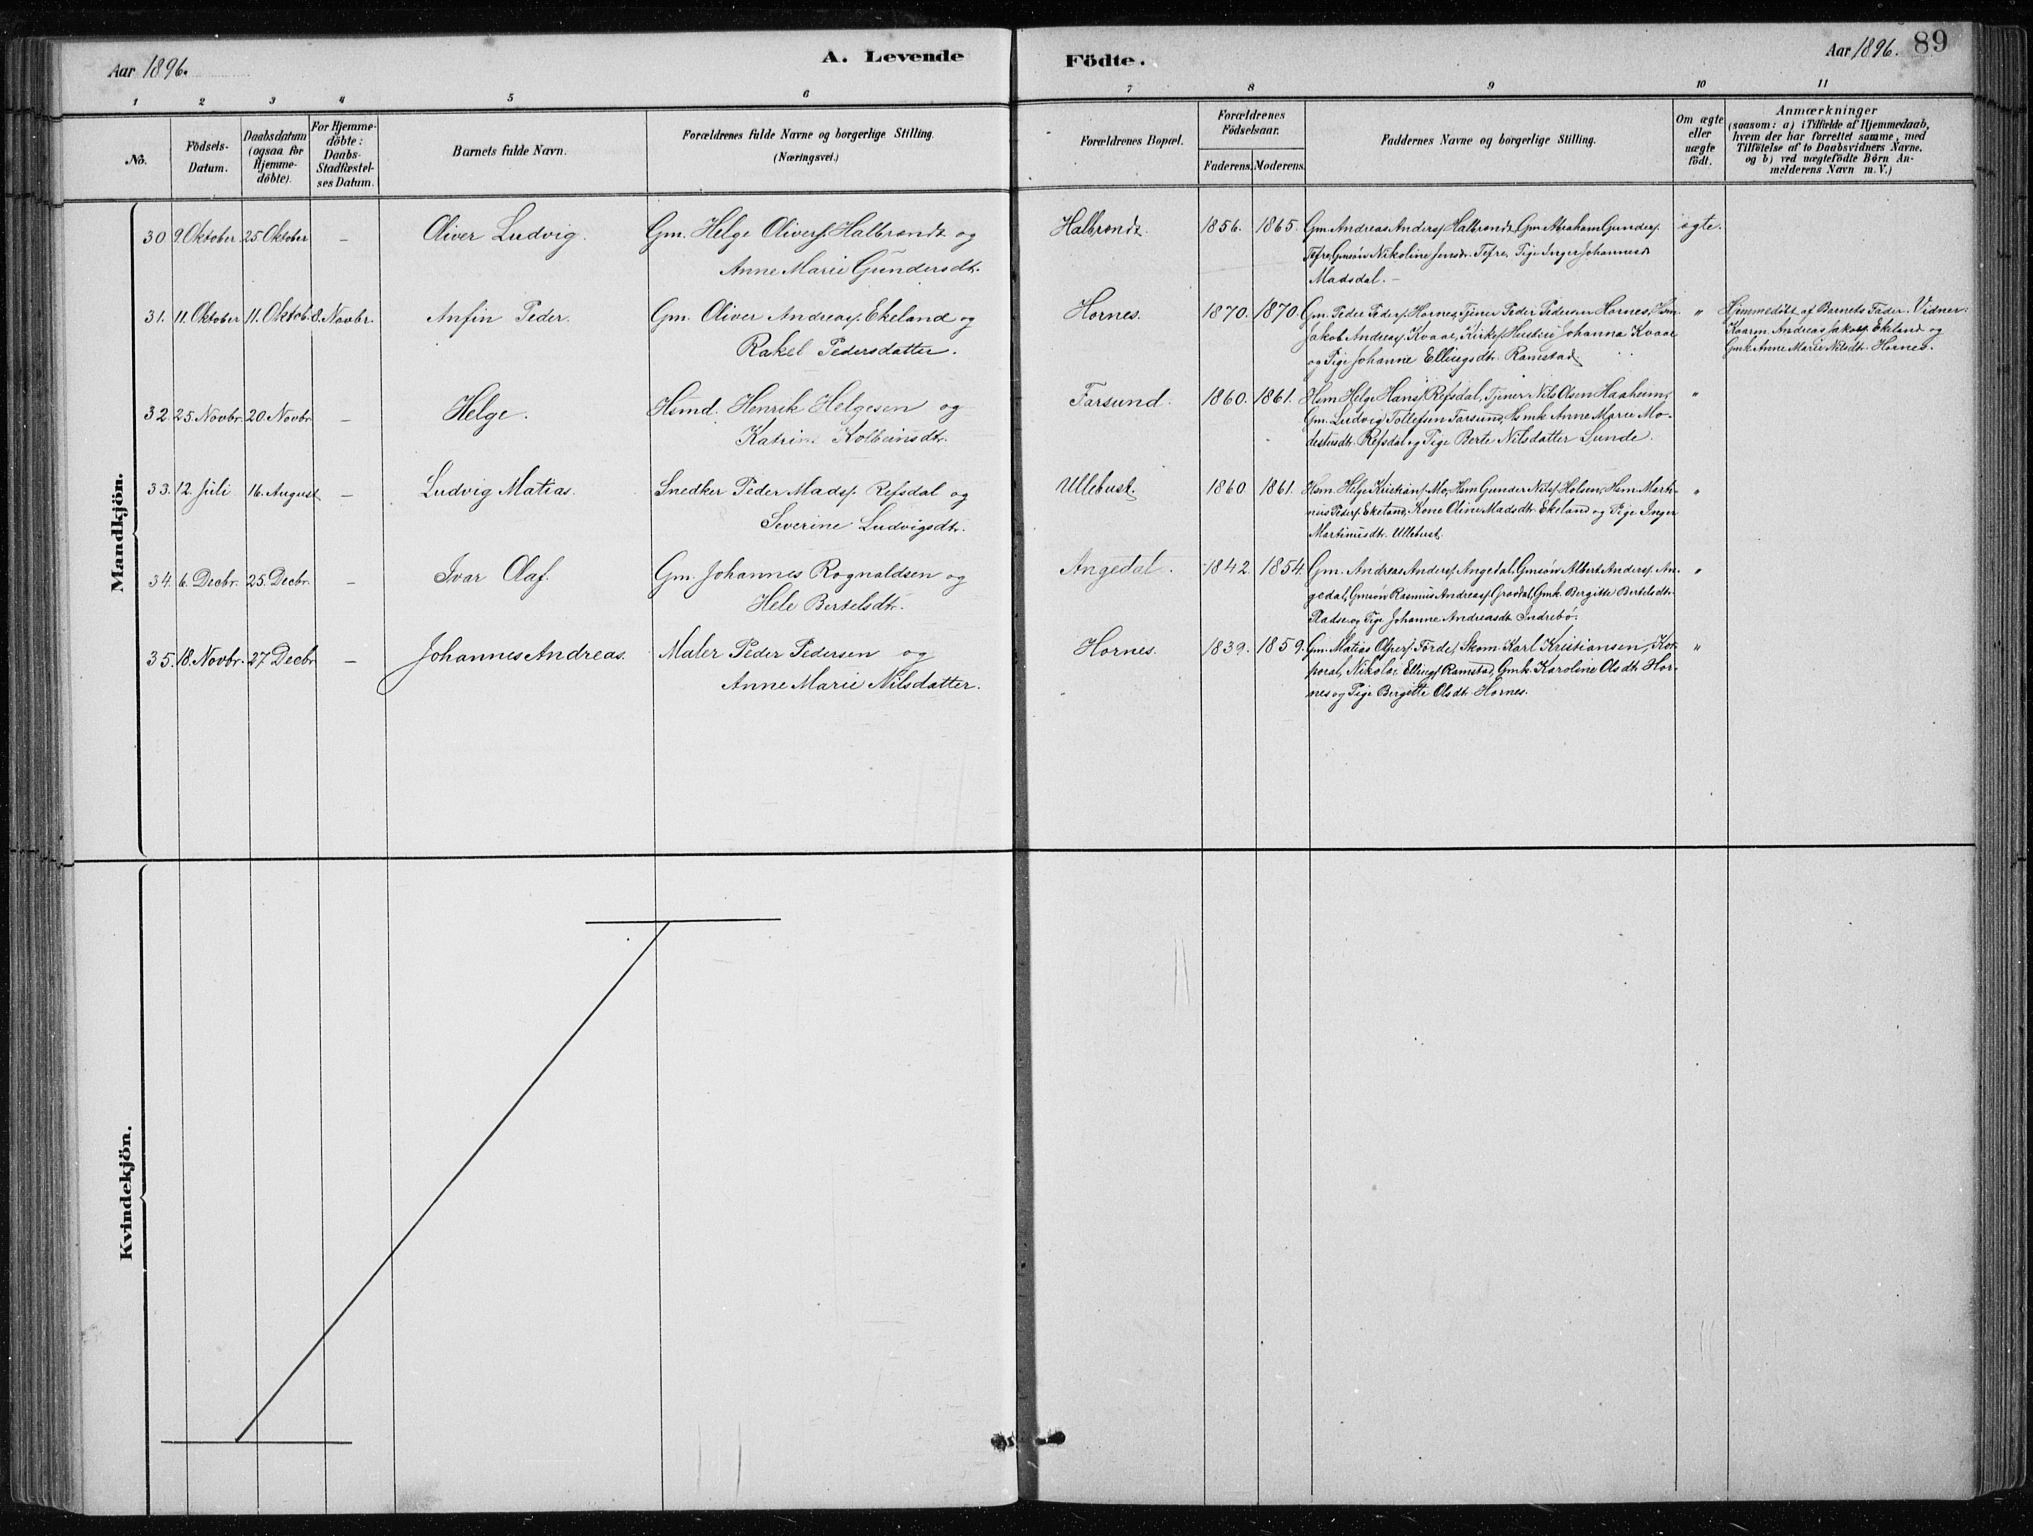 Aar 1896.
A. Levende
Födte.
Aar 1896.
89
1 2 3 4 5 6 7 8 9 10 11
No.
Födsels-
Datum.
Daabsdatum
(ogsaa for
Hjemme-
döbte).
For Hjemme-
döbte:
Daabs-
Stadfæstel-
ses Datum.
Barnets fulde Navn.
Forældrenes fulde Navne og borgerlige Stilling.
(Næringsvei.)
Forældrenes Bopæl.
Forældrenes
Födselsaar.
Faderens. Moderens.
Faddernes Navne og borgerlige Stilling.
Om ægte
eller
uægte
födt.
Anmærkninger
(saasom: a) i Tilfælde af Hjemmedaab,
hvem der har forrettet samme, med
Tilföielse af to Daabsvidners Navne,
og b) ved uægtefödte Börn An-
melderens Navn m. V.)
Mandkjön.
30. 9. Oktober. 25 Oktober – Oliver Ludvig. Gm. Helge Olivers. Halbrendt og
Anne Marie Gundersdt.
Halbrendt. 1856. 1865. Gm. Andreas Anders. Halbrendt, Gm. Abraham Gunders.
Tefre, Gmsøn Nikoline Jensdr. Tefre, Pige Inger Johannesdr.
Madsdal. –
ægte.
31. 11. Oktober 11. Oktob. 8. Novbr. Anfin Peder. Gm. Oliver Andreas. Ekeland og
Rakel Pedersdatter.
Hornes. 1870. 1870. Gm. Peder Peders. Hornes, Tjener Peder Pedersen Hornes, Hsm.
Jakob Andreas. Kvaae, Kirkes. Hustru Johanna Kvaae
og Pige Johanne Ellingsdt. Ramstad.
" Hjemmedöbt af Barnets Fader. Vidner:
Kaarm. Andreas Jakobs. Ekeland og
Gmk. Anne Marie Nilsdt. Hornes.
32. 25 Novbr. 20 Novbr – Helge. Hsmd. Henrik Helgesen og
Katrine Kolbeinsdt.
Farsund. 1860. 1861. Hsm. Helge Hans. Refsdal, Tjener Nils Olsen Haaheim,
Gm. Ludvig Tollefsen Farsund, Hsmk. Anne Marie Mo-
destusdt. Refsdal og Pige Berte Nilsdatter Sunde.
"
33. 12. Juli 16. August – Ludvig Matias. Snedker Peder Mads. Refsdal og
Severine Ludvigsdt.
Ullebust. 1860. 1861. Hsm. Helge Kristians. Mo, Hsm. Gunder Nils. Holsen, Hsm. Marti-
nus Peders. Ekeland, Kone Oline Madsdt. Ekeland og Pige Inger
Martinusdt. Ullebust.
"
34. 6. Decbr. 25 Decbr. – Ivar Olaf. Gm. Johannes Rognaldsen og
Hele Bertelsdt.
Angedal. 1842. 1854. Gm. Andreas Anders. Angedal, Gmsøn Albert Anders. An-
gedal, Gmsøn Rasmus Andreas. Grovdal, Gmk. Bergitte Bertelsdt.
Pladse og Pige Johanne Andreasdt. Indrebø.
"
35. 18. Novbr. 27 Decbr – Johannes Andreas. Maler Peder Pedersen og
Anne Marie Nilsdatter.
Hornes. 1839. 1859. Gm. Matias Olpers. Förde, Skom. Karl Kristiansen, Kor-
poral, Nikolai Ellings. Ramstad, Gmk. Karoline Olsdt. Hor-
nes og Pige Bergitte Olsdt. Hornes.
"
Kvindekjön.